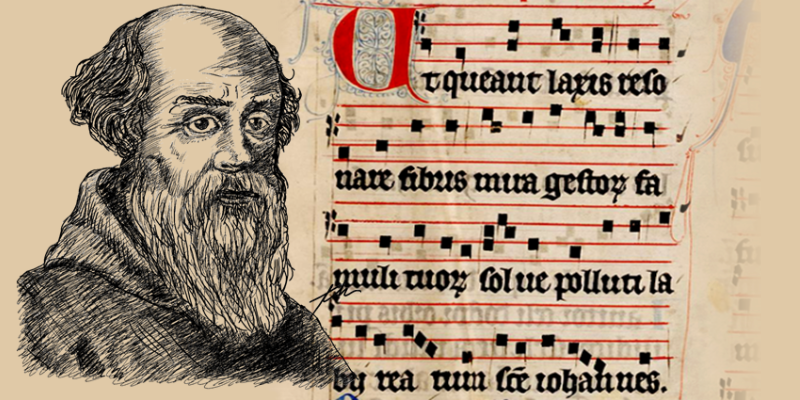 Ut queant laxis reso
nare fibris mira gestoꝝ fa
muli tuoꝝ solue polluti la
bij rea tum sc̄e iohannes.